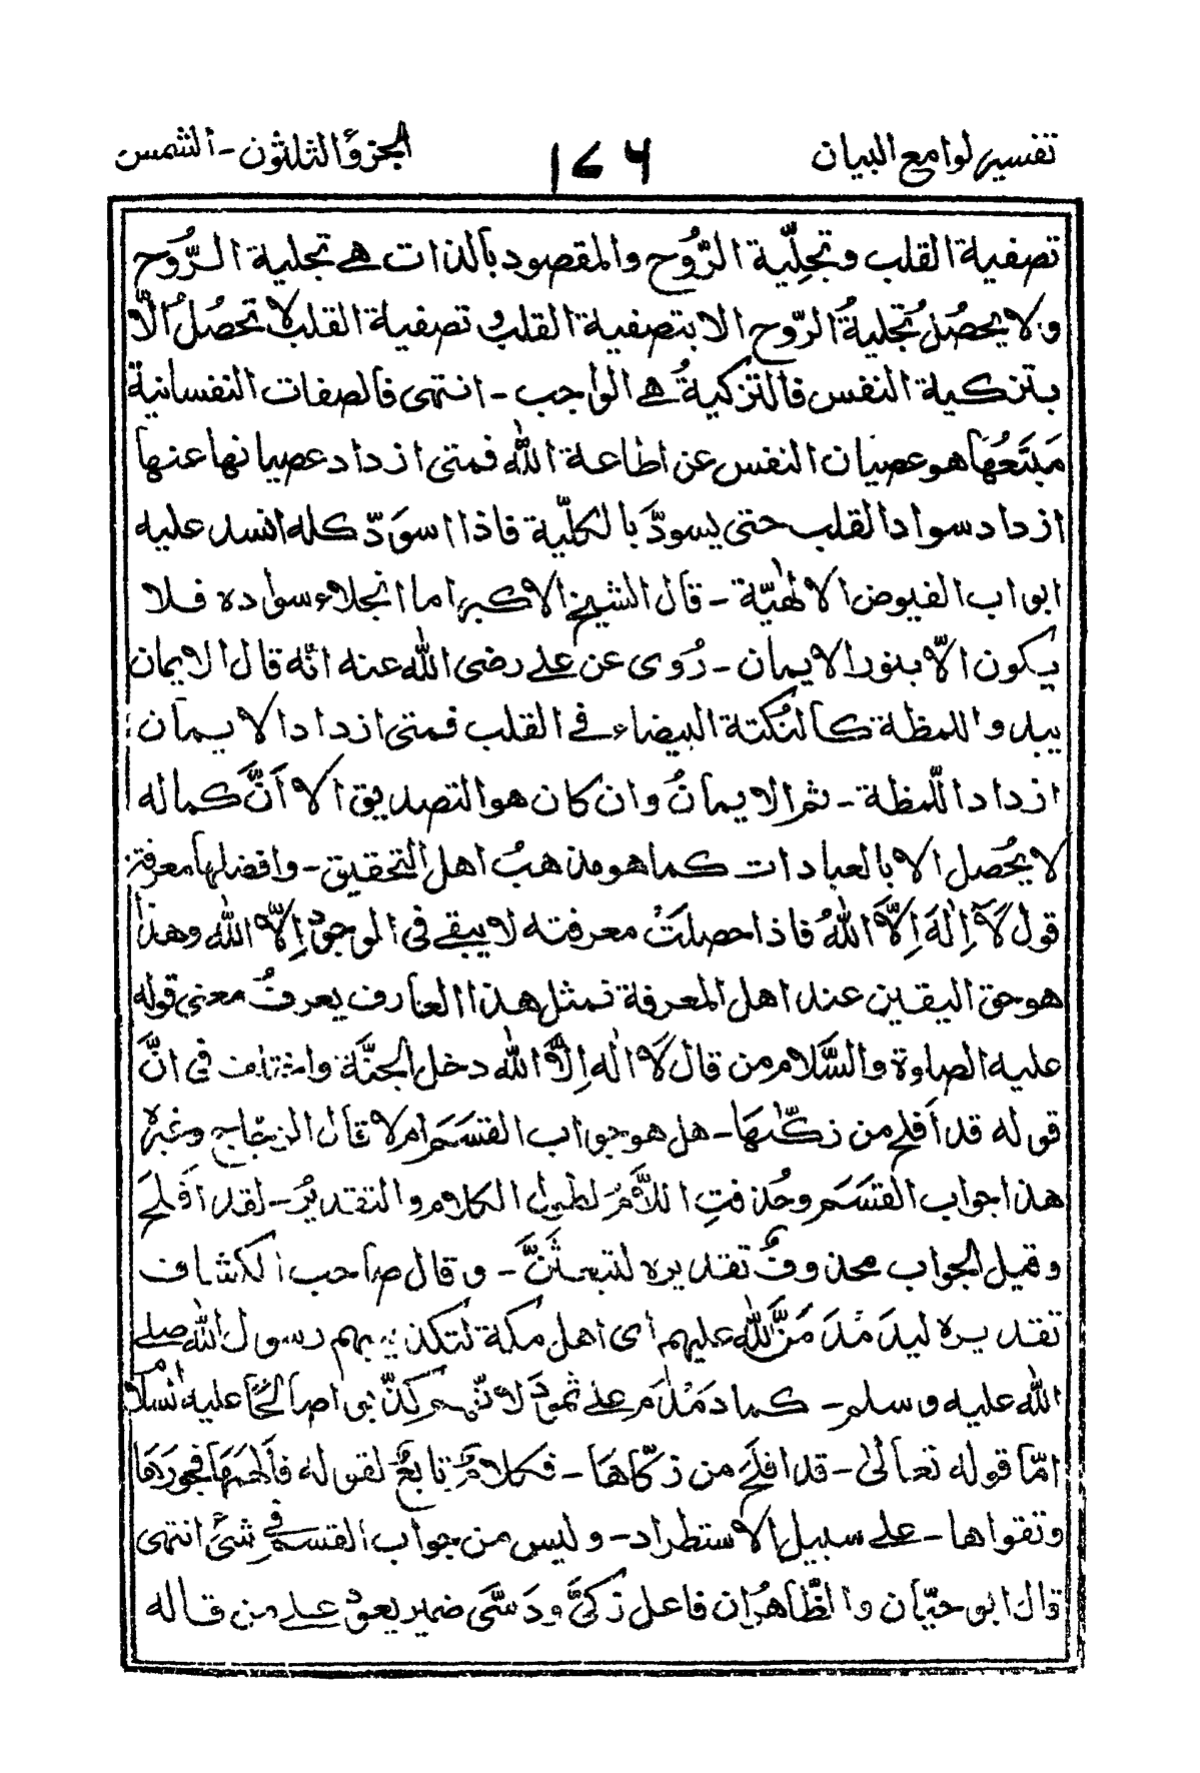 تفسير لوامع البيان
١٧٦
الجزؤ الثلثون - الشمس
تصفية القلب وتجلّية الرُّوح والمقصود بالذات هے تجلية الرُّوح
ولا يحصُل تجليةُ الرّوح الا بتصفية القلب و تصفية القلب لا تحصُل الّا
بتزكية النفس فالتزكيةُ هے الواجب - انتهى فالصفات النفسانية
مَبتَعُها هو عصيان النفس عن اطاعة الله فمتى ازداد عصيانها عنها
ازداد سواد القلب حتى يسودّ بالكلّية فاذا اسوَدّ كله انسد عليه
ابواب الفيوض الالٰهيّة - قال الشيخ الاكبر اما انجلاء سواده فلا
يكون الّا بنور الايمان - رُوى عن علے رضى الله عنه انّه قال الايمان
يبدو اللمظة كالنُكتة البيضاء فے القلب فمتى ازداد الايمان
ازداد اللّمظة - ثم الايمانُ وان كان هو التصديق الا اَنَّ كماله
لا يحُصَل الا بالعبادات كما هو مذهبُ اهل التحقيق - وافضلها معرفة
قول لَآ اِلٰهَ اِلَّا اللهُ فاذا حصلتْ معرفته لا يبقے فى الوجود اِلّا الله وهذا
هو حق اليقين عند اهل المعرفة فمثل هذا العارف يعرفُ معنى قوله
عليه الصلوة والسَّلام من قال لَا الٰه اِلَّا الله دخل الجنَّة واختلف فى انَّ
قوله قد اَفلح من زكّٰها - هل هو جواب القسَم ام لا قال الزجّاج وغيره
هذا جواب القسَم وحُذفتِ اللَّامُ لطول الكلام والتقديرُ - لقد اَفلحَ
وقيل الجواب محذوفٌ تقديره لتبعثُنَّ - وقال صاحب الكشاف
تقديره ليدَمْدَمَنَّ الله عليهم اى اهل مكة لتكذيبهم رسول الله صلے
الله عليه وسلم - كما دَمْدَم علے ثمودَ لانّهم كذّبوا صالحًا عليه السلام
امّا قوله تعالٰى - قد افلحَ من زكّاها - فكلامٌ تابعٌ لقوله فاَلهمَهَا فجورَها
وتقواها - علے سبيل الاستطراد - وليس من جواب القسم فے شئ انتهى
قال ابو حيّان والظّاهرُ ان فاعل زكىَّ ودَسَّى ضمير يعود علے من قاله